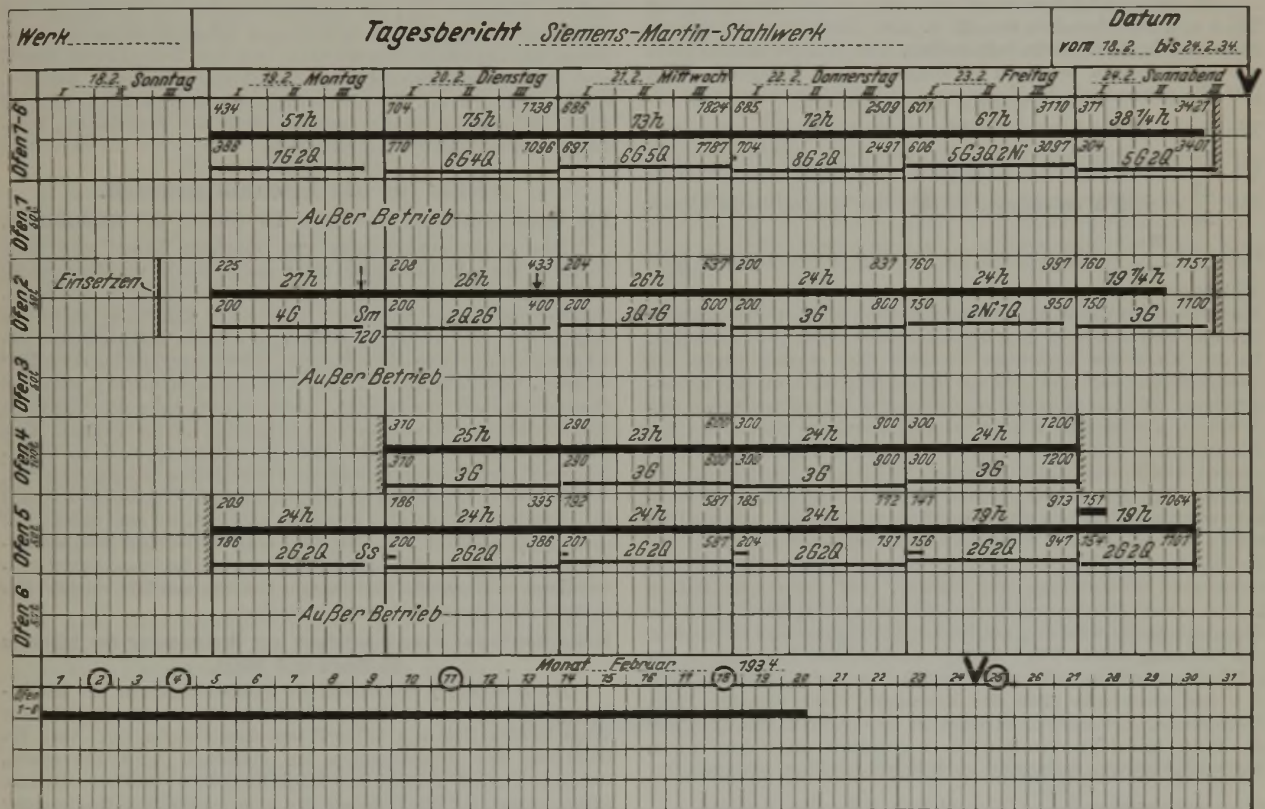 Werk
Tagesbericht Siemens-Martin-Stahlwerk
Datum
vom 18.2. bis 24.2.34.
18.2. Sonntag 19.2. Montag 20.2. Dienstag 21.2. Mittwoch 22.2. Donnerstag 23.2. Freitag 24.2. Sonnabend
I II III I II III I II III I II III I II III I II III I II III
Ofen 1-6
434 51h 704 75h 1138 686 73h 1824 685 72h 2509 601 67h 3110 311 38 1/4 h 3421
388 7G2Q 710 6G4Q 1098 691 6G5Q 1787 704 8G2Q 2497 606 5G3Q2Ni 3097 304 5G2Q 3401
Ofen 1
Außer Betrieb
Ofen 2
Einsetzen 225 27h 208 26h 433 204 26h 637 200 24h 837 160 24h 997 160 19 1/4 h 1157
200 4G Sm 200 2Q2G 400 200 3Q1G 600 200 3G 800 150 2Ni1Q 950 150 3G 1100
120
Ofen 3
Außer Betrieb
Ofen 4
310 25h 290 23h 600 300 24h 900 300 24h 1200
310 3G 290 3G 600 300 3G 900 300 3G 1200
Ofen 5
209 24h 186 24h 395 192 24h 587 185 24h 772 141 19h 913 151 19h 1064
186 2G2Q Ss 200 2G2Q 386 201 2G2Q 587 204 2G2Q 791 156 2G2Q 947 154 2G2Q 1101
Ofen 6
Außer Betrieb
Monat Februar 1934
1 2 3 4 5 6 7 8 9 10 11 12 13 14 15 16 17 18 19 20 21 22 23 24 25 26 27 28 29 30 31
Ofen
1-6